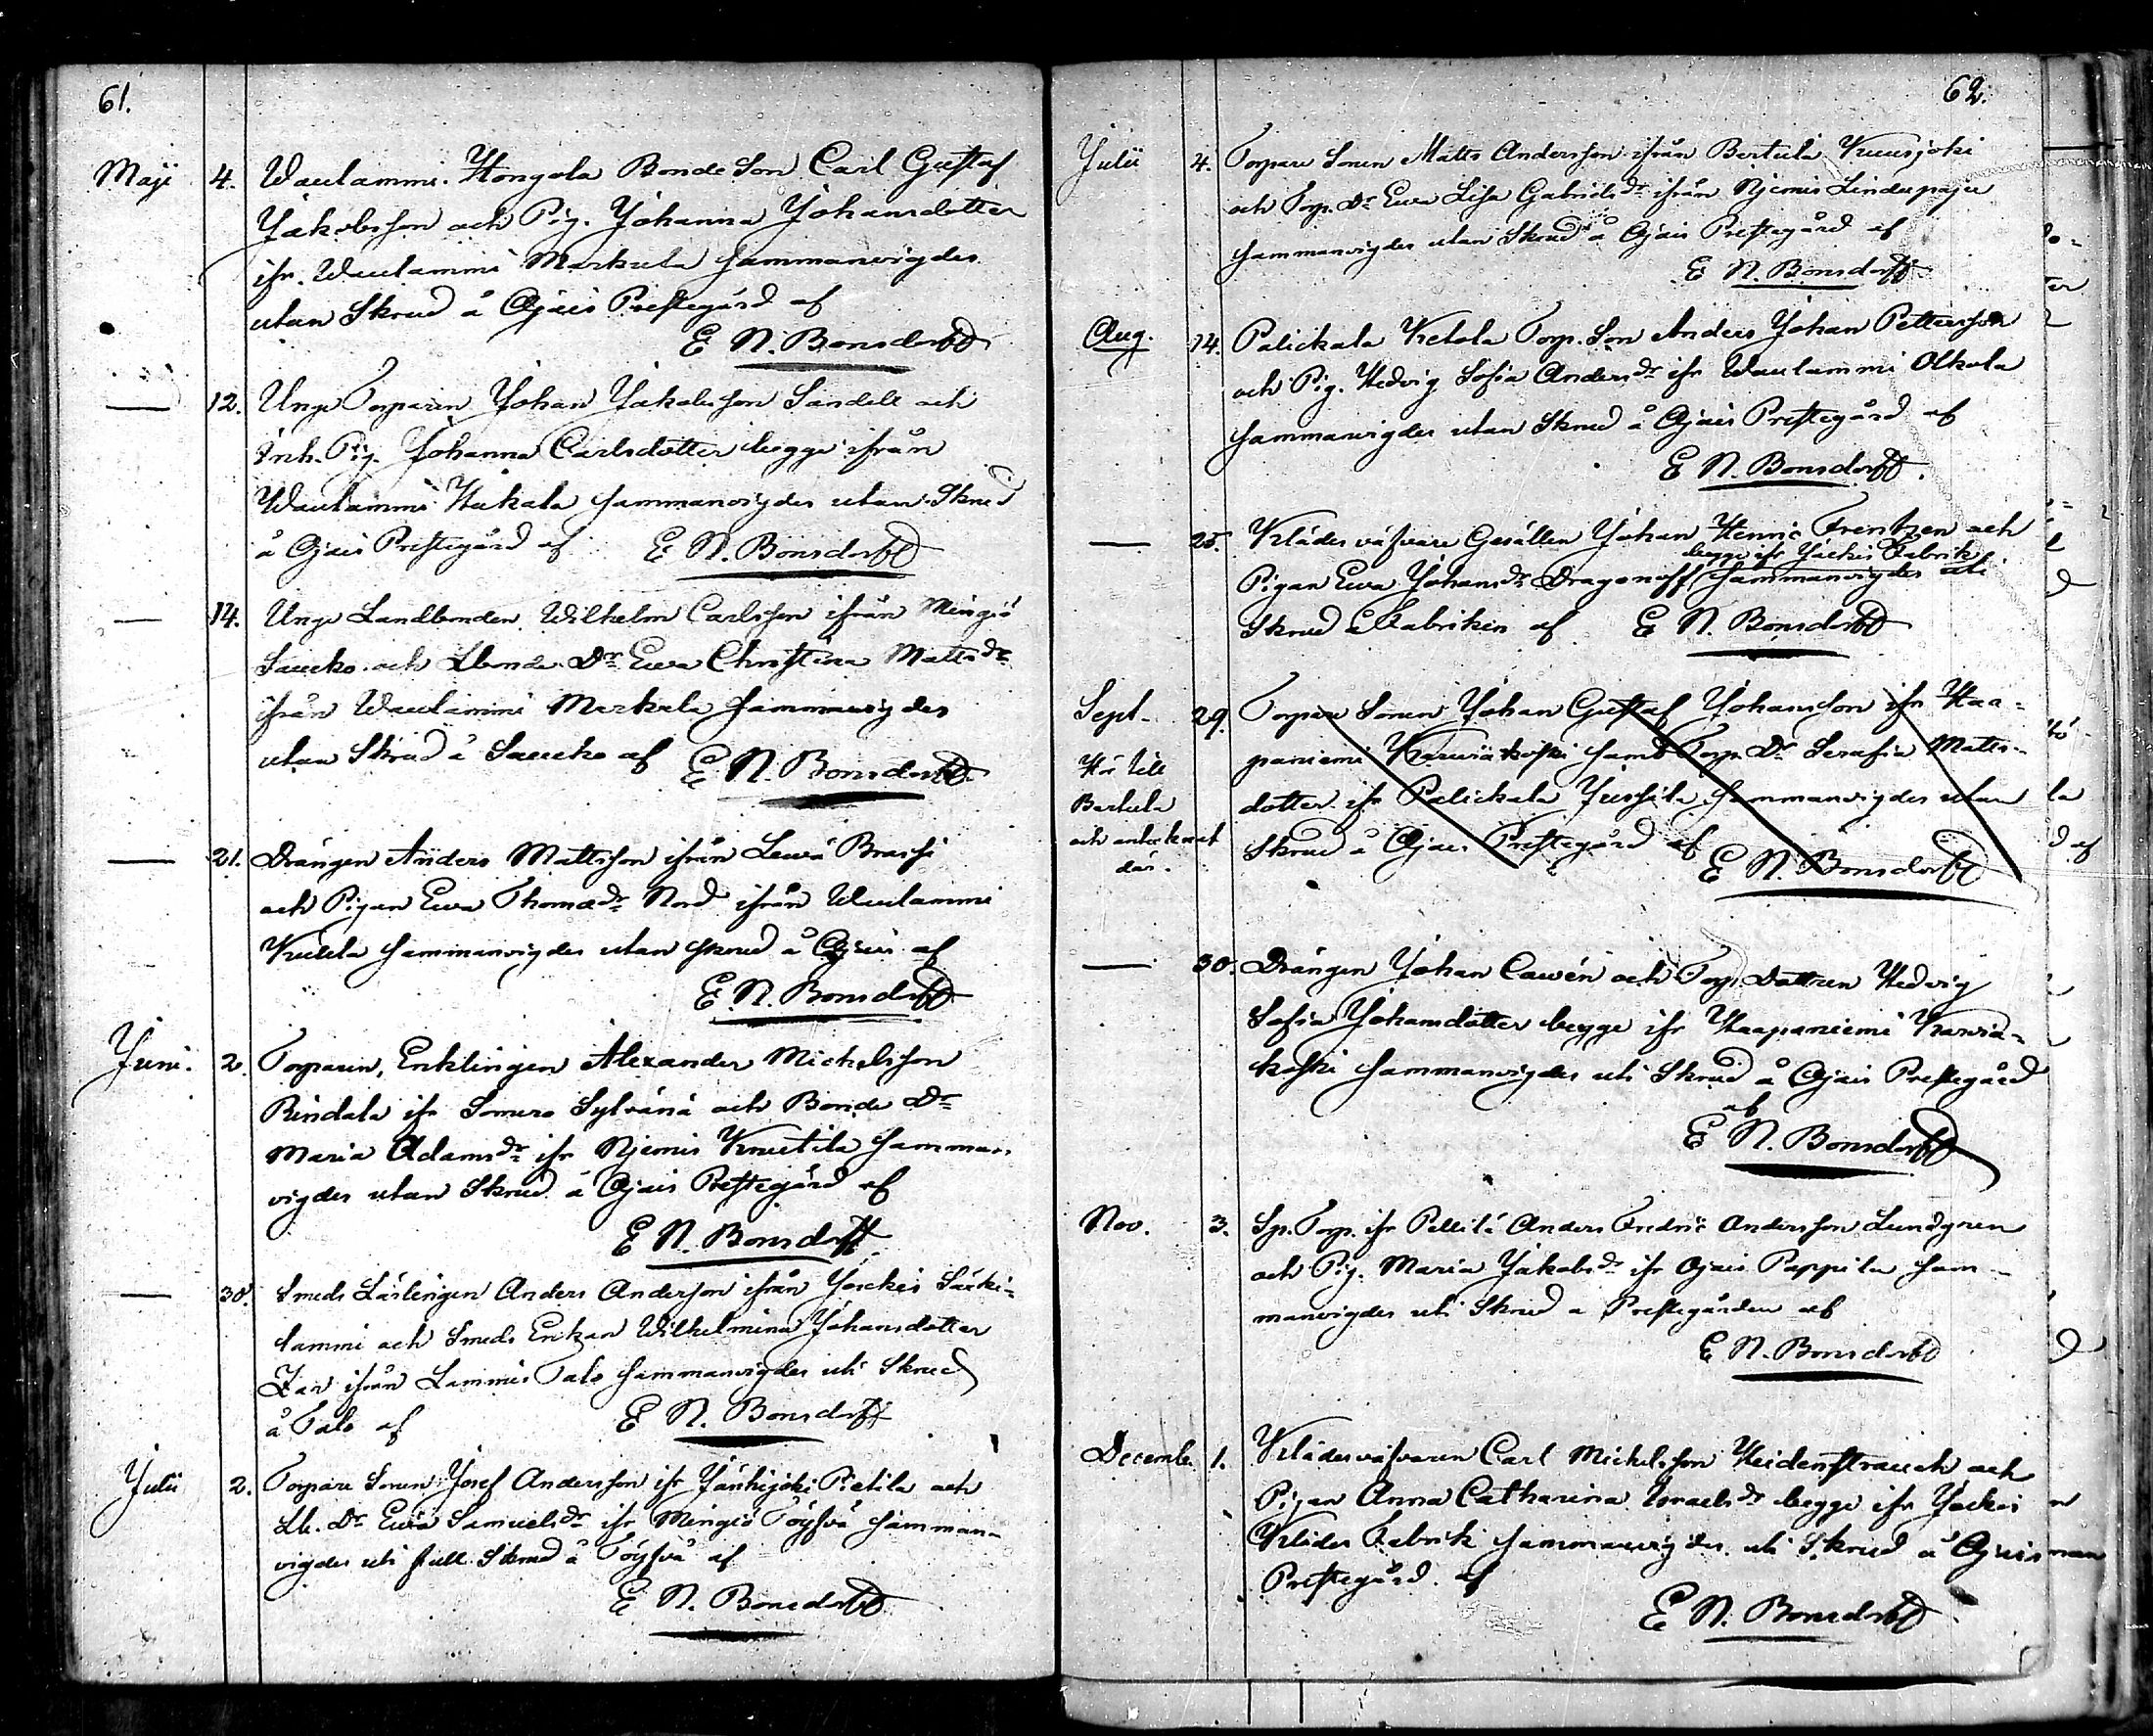 61.
Maji 4. Waulammi Hongola Bonde Son Carl Gustaf
Jakobsson och Pig. Johanna Johansdotter
ifr. Waulammi Markula sammanvigdes
utan Skrud å Ojais Prestegård af
E. N. Bonsdorff
— 12. Unge Torparen Johan Jakobsson Sandell och
Inh. Pig. Johanna Carlsdotter begge ifrån
Waulammi Hakala sammanvigdes utan Skrud
å Ojais Prestegård af E. N. Bonsdorff
— 14. Unge Landbonden Wilhelm Carlsson ifrån Mingiö
Saucko och Lbonde Dr Ewa Christina Mattsdr
ifrån Waulammi Markula sammanvigdes
utan Skrud å Saucko af E. N. Bonsdorff
— 21. Drängen Anders Mattsson ifrån Lewä Brassi
och Pigan Ewa Thomædr Nord ifrån Waulammi
sammanvigdes utan skrud å Ojais af
E. N. Bonsdorff
Juni. 2. Torparen, Enklingen Alexander Michelsson
Rindala ifr Somero Sylvänä och Bonde Dr
Maria Adamsdr ifr Njemis Knuutila samman-
vigdes utan Skrud å Ojais Prestegård af
E N. Bonsdorff
— 30. Smeds Lärlingen Anders Andersson ifrån Jockis Särki-
lammi och Smeds Enkan Wilhelmina Johansdotter
ifrån Lammis Talo sammanvigdes uti Skrud
å Talo af E N. Bonsdorff
Julii 2. Torpare Sonen Josef Andersson ifr Jänhijoki Pietilä och
Lb. Dr Ewa Samuelsdr ifr Mingiö Töysvä samman-
vigdes uti full Skrud å Töysvä af
E N. Bonsdorff
62.
Julii 4. Torpare Sonen Matts Andersson ifrån Bertula Kuusjoki
och Torp. Dr Ewa Lisa Gabrielsdr ifrån Njemis Lindupaju
sammanvigdes utan Skrud å Ojais Prestegård af
E N. Bonsdorff
Aug. 14. Palickala Ketola Torp. Son Anders Johan Pettersson
och Pig. Hedvig Sofia Andersdr ifr Waulammi Olkola
sammanvigdes utan Skrud å Ojais Prestegård af
E N. Bonsdorff.
— 25. Klädesväfvare Gesällen Johan Henric Frentzen och
begge ifr Jockis Fabrik
Pigan Ewa Johansdr Dragonoff sammanvigdes uti
Skrud å Fabriken af E N. Bonsdorff
Sept. 29. Torpare Sonen Johan Gustaf Johansson ifr Haa-
paniemi Karwiäkoski samt Torp. Dr Serafia Matts-
dotter ifr Palickala Jussila sammanvigdes utan
Skrud å Ojais Prestegård af
E N. Bonsdorff
Hör till
Bertula
och antecknat
där.
— 30. Drängen Johan Cawén och Torp. Dottren Hedvig
Sofia Johansdotter begge ifr Haapaniemi Karwia-
koski sammanvigdes uti Skrud å Ojais Prestegård
af
E N. Bonsdorff
Nov. 3. Sp. Torp. ifr Pellilä Anders Fredric Andersson Lundgren
och Pig. Maria Jakobsdr ifr Ojais Pappila sam-
manvigdes uti Skrud å Prestegården af
E N. Bonsdorff
Decembr. 1. Klädesväfvaren Carl Michelsson Heidenstrauch och
Pigan Anna Catharina Israelsdr begge ifr Jockis
Klädes Fabrik sammanvigdes uti Skrud å Ojais
Prestegård af
E N. Bonsdorff